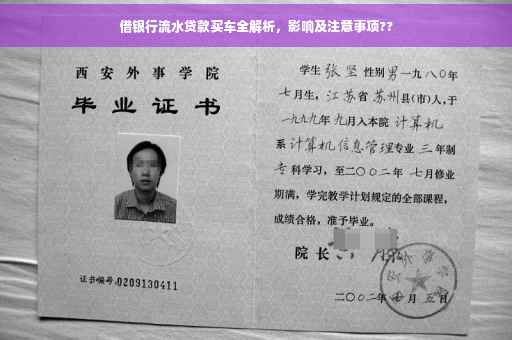 借银行流水贷款买车全解析，影响及注意事项??
西安外事学院
毕业证书
证书编号:0209130411
学生 张坚 性别 男 一九八〇年
七月生，江苏省 苏州县(市)人,于
一九九九年 九月入本院 计算机
系 计算机信息管理专业 三 年制
专科学习，至二〇〇二年 七月修业
期满，学完教学计划规定的全部课程，
成绩合格，准予毕业。
院长
二〇〇二年 七月 五日